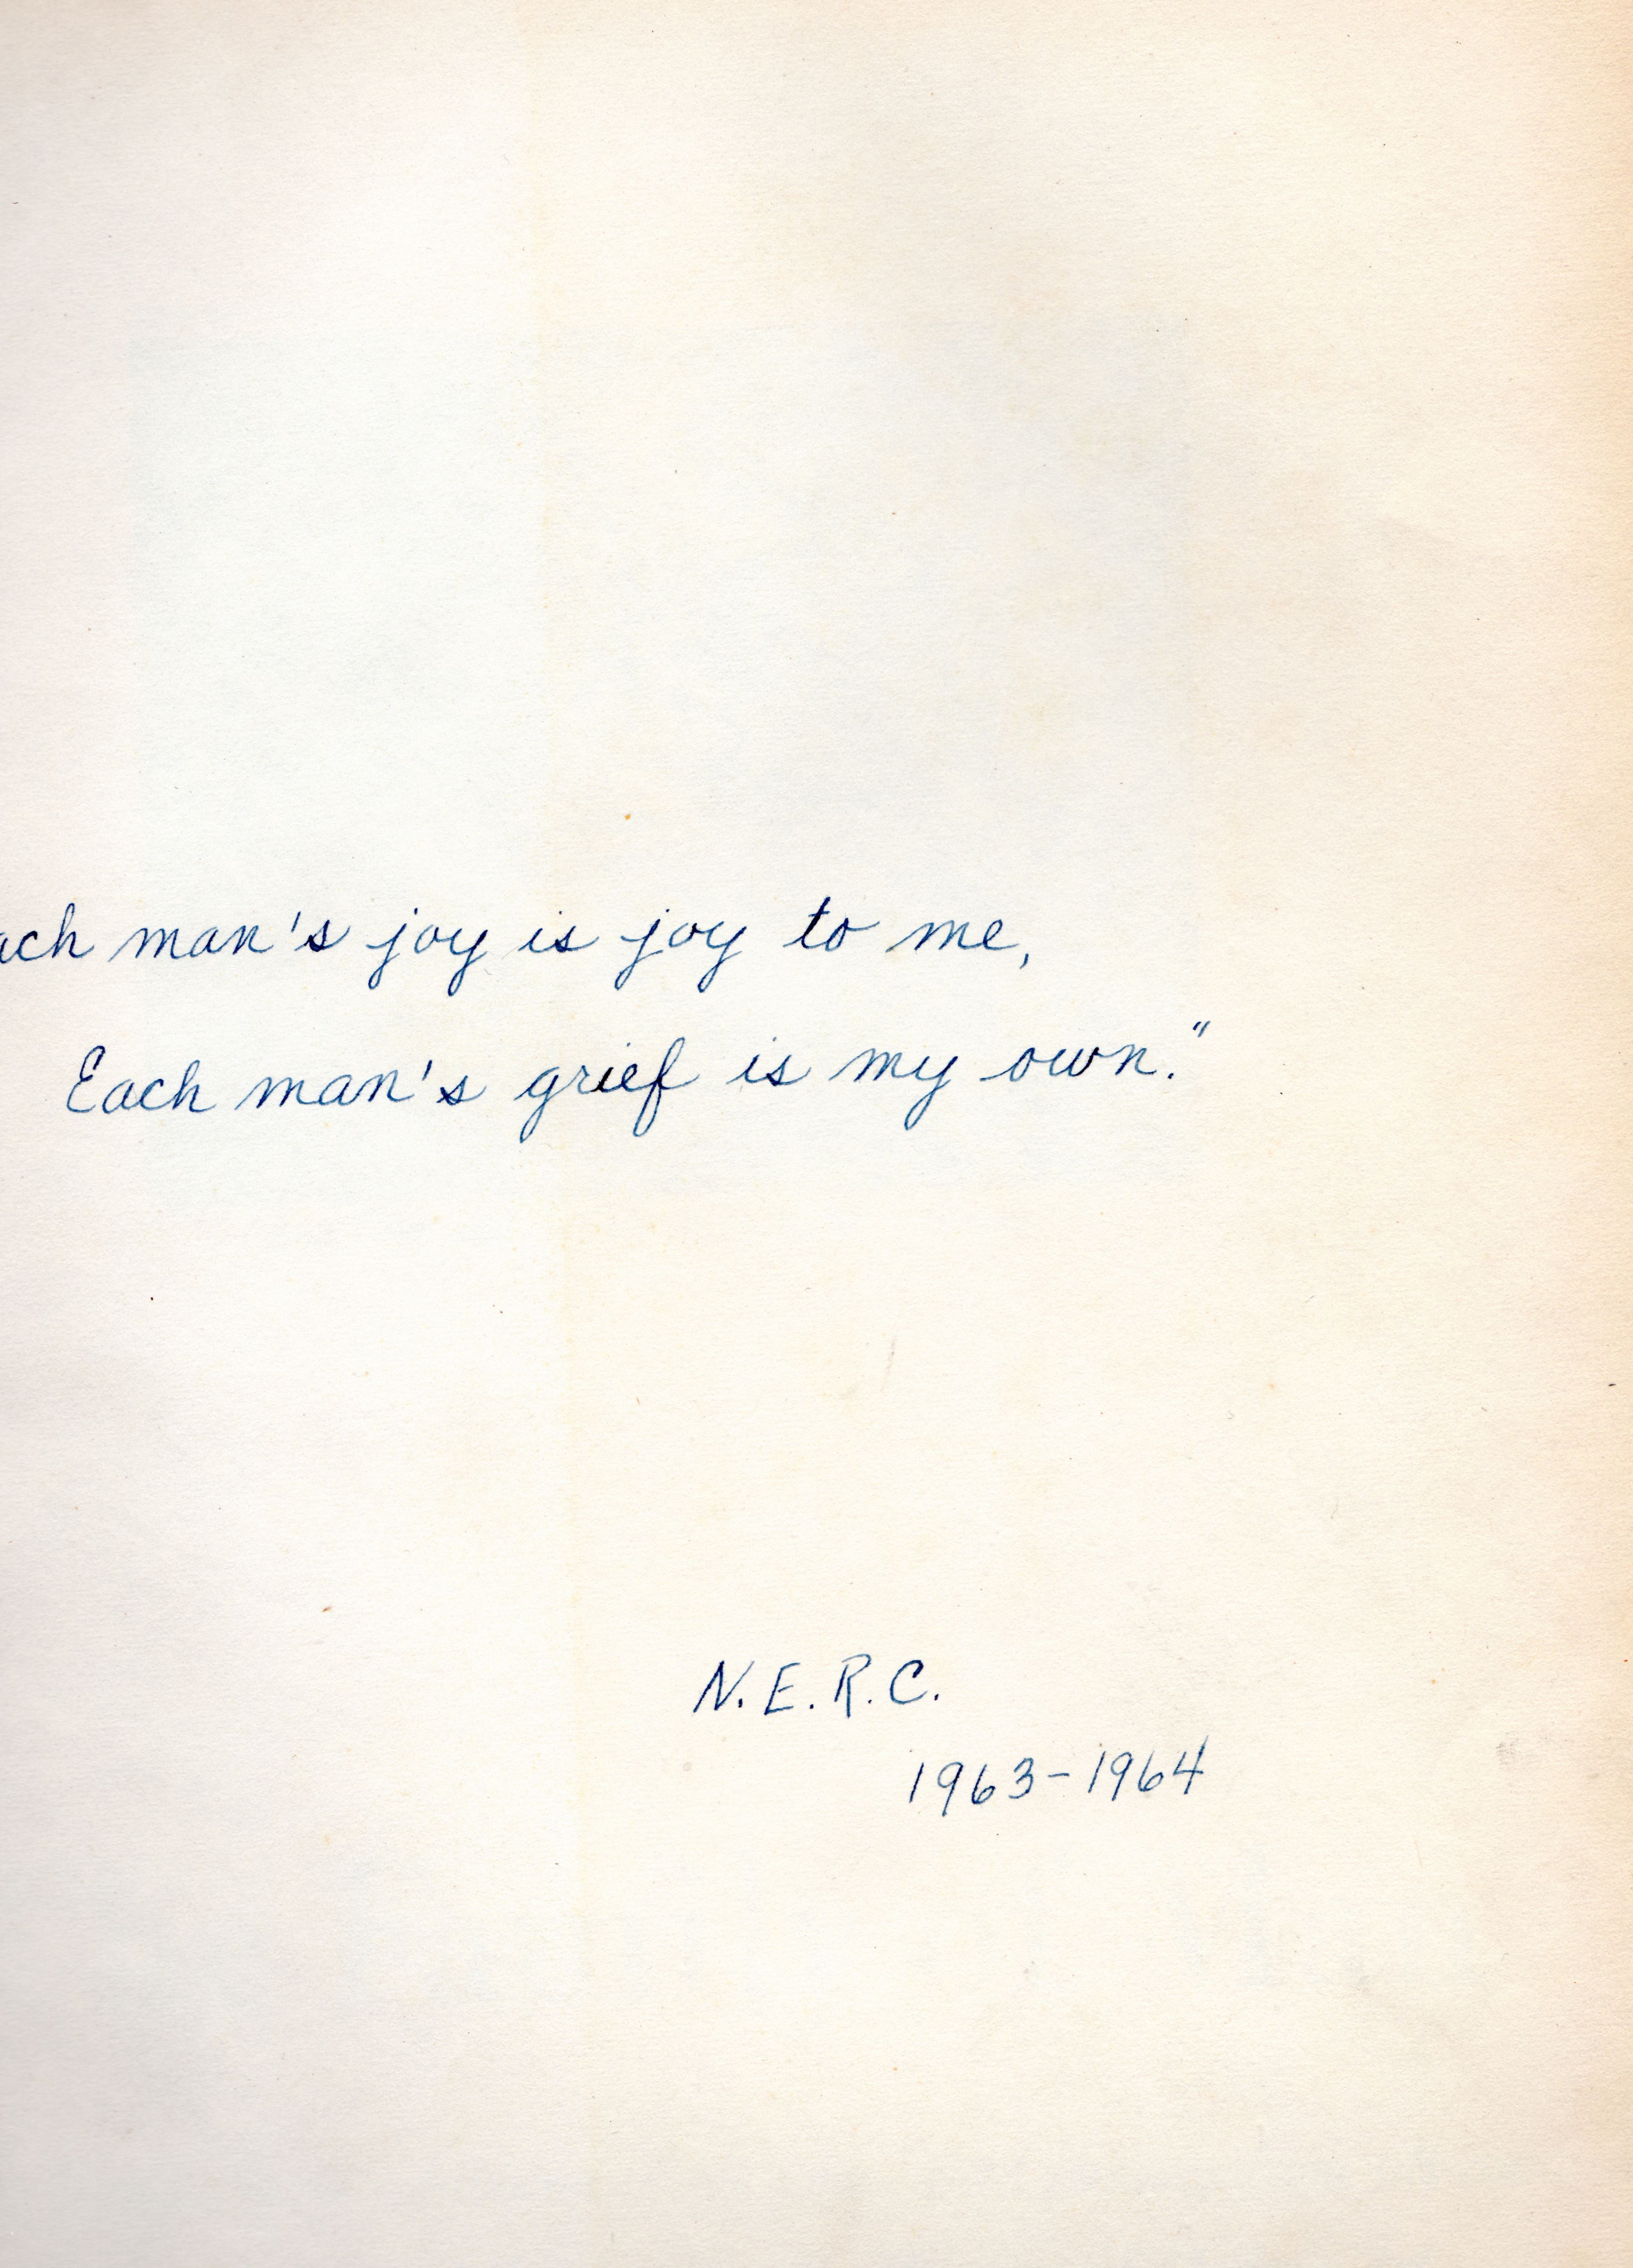 ach man's joy is joy to me,
Each man's grief is my own."
N.E.R.C.
1963-1964